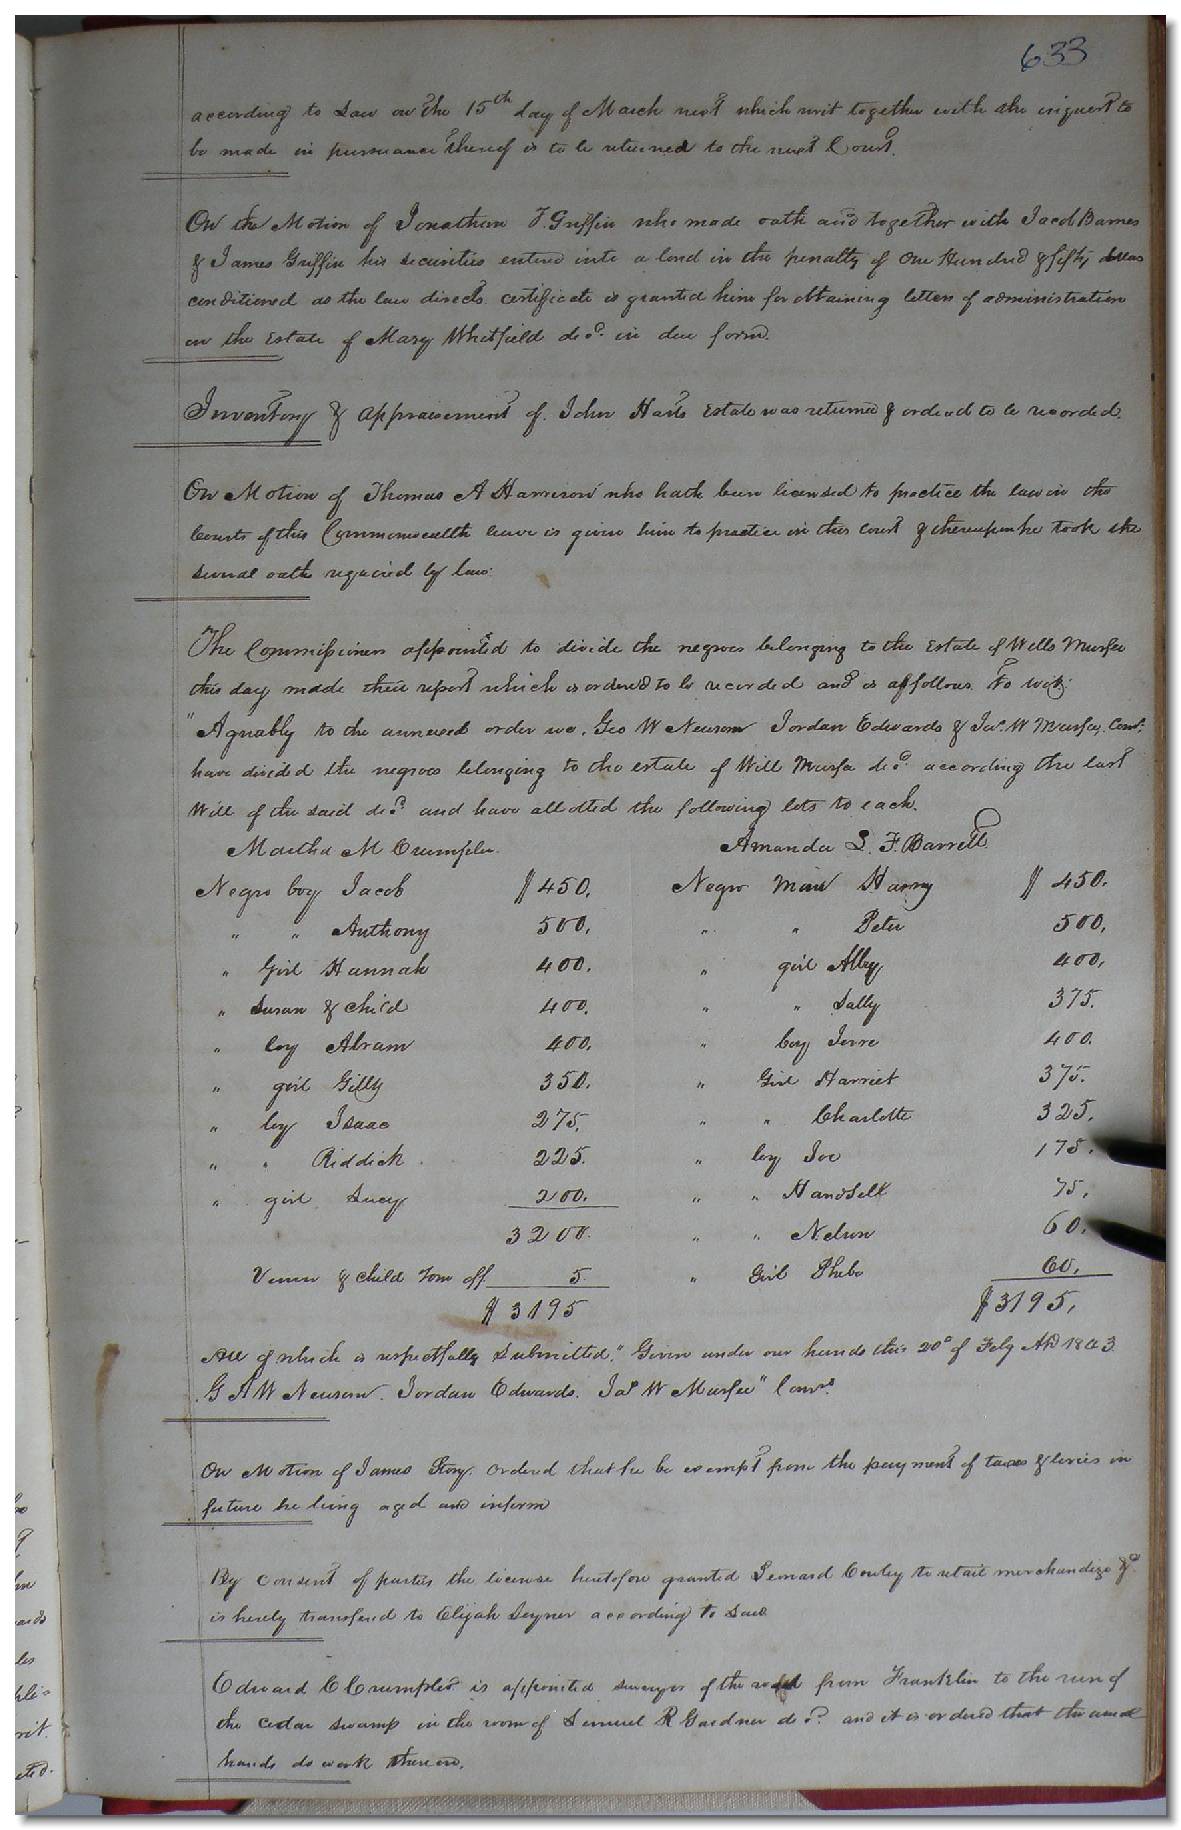 633
according to Law on the 15th day of March next which writ together with the inquest to
be made in pursuance thereof is to be returned to the next Court.
On the Motion of Jonathan T. Griffin who made oath and together with Jacob Barnes
& James Griffin his securities entered into a bond in the penalty of One Hundred & fifty dollars
conditioned as the law directs certificate is granted him for obtaining letters of administration
on the Estate of Mary Whitfield decd. in due form.
Inventory & appraisement of John Harts Estate was returned & ordered to be recorded.
On Motion of Thomas A Harrison who hath been licensed to practice the law in the
Courts of this Commonwealth leave is given him to practice in this Court & thereupon he took the
several oaths required by law.
The Commissioners appointed to divide the negroes belonging to the Estate of Wells Murfee
this day made their report which is ordered to be recorded and is as follows. To wit:
"Agreeably to the annexed order we, Geo W Newsom Jordan Edwards & Jas. W Murfee, Comrs.
have divided the negroes belonging to the estate of Will Murfee decd. according the last
Will of the said decd. and have allotted the following lots to each.
Martha M Crumpler. Amanda L. F. Barrett
Negro boy Jacob $450. Negro Man Harry $450.
" " Anthony 500. " " Peter 500.
" Girl Hannah 400. " girl Alley 400.
" Susan & child 400. " " Sally 375.
" boy Abram 400. " boy Jerre 400.
" girl Gilly 350. " Girl Harriet 375.
" boy Isaac 275. " " Charlotte 325.
" " Riddick 225. " boy Joe 175.
" girl Lucy 200. " " Handsell 75.
3200. " " Nelson 60.
Venus & child Tom off 5. " Girl Phebe 60.
$3195 $3195.
All of which is respectfully Submitted." Given under our hands this 20th of Feby AD 1843.
G A W Newsom. Jordan Edwards. Jas W Murfee" Comrs.
On Motion of James Story. Ordered that he be exempt from the payment of taxes & levies in
future he being aged and infirm
By Consent of parties the license heretofore granted Lemard Cowley to retail merchandize &c
is hereby transfered to Elijah Joyner according to Law.
Edward C Crumpler is appointed surveyor of the road from Franklin to the run of
the cedar swamp in the room of Lemuel R Gardner decd. and it is ordered that the usual
hands do work thereon.